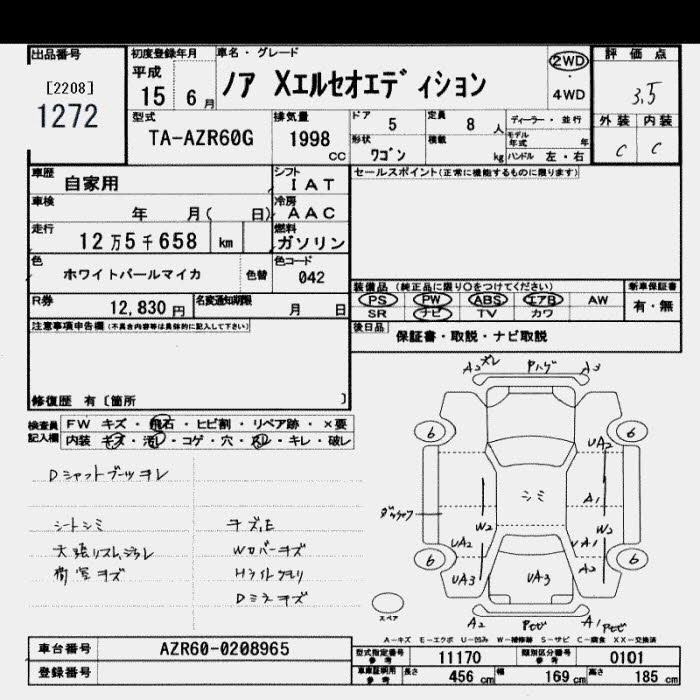 出品番号
[2208]
1272
初度登録年月
平成
15 6月
車名・グレード
ノア Xエルセオエディション
2WD
・
4WD
評価点
3.5
外装 内装
C C
型式
TA-AZR60G
排気量
1998
CC
ドア
5
定員
8 人
形状
ワゴン
積載
kg
ディーラー・並行
モデル年式 年
ハンドル 左・右
車歴
自家用
シフト
IAT
車検
年 月( 日)
冷房
AAC
走行
12万5千658 km
燃料
ガソリン
色
ホワイトパールマイカ
色替
色コード
042
R券
12,830 円
名変通知期限
月 日
セールスポイント(正常に機能するものに限ります)
装備品 (純正品に限り○をつけてください)
新車保証書
PS PW ABS エアB AW
SR ナビ TV カワ
有・無
後日品
保証書・取説・ナビ取説
注意事項申告欄 (不具合内容等は具体的に記入して下さい)
修復歴 有〔箇所 〕
検査員記入欄
FW キズ・飛石・ヒビ割・リペア跡・×要
内装 キズ・汚レ・コゲ・穴・スレ・キレ・破レ
Dシャフトブーツヨレ
シートシミ
Wカバーキズ
荷室キズ
Hライトクモリ
Dミラーキズ
A2 ズレ
A3
6 6
UA2
シミ
A1
W2 W2
UA2 UA1
A2
UA3 UA3
6 6
スペア
A2
A1
A-キズ E-エクボ U-凹み W-補修跡 S-サビ C-腐食 XX-交換済
車台番号
AZR60-0208965
登録番号
型式指定番号
参考
11170
類別区分番号
参考
0101
車庫証明用
参考
長さ 456 cm 幅 169 cm 高さ 185 cm